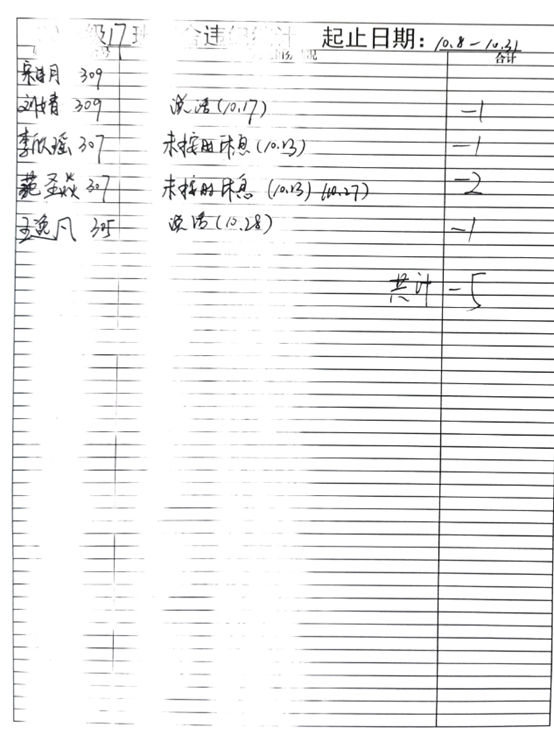 级17班 违纪统计 起止日期：10.8-10.31
合计
309
刘婧 309 说话(10.17) -1
李欣瑶 307 未按时休息(10.13) -1
范圣焱 307 未按时休息 (10.13) (10.27) -2
王逸凡 305 说话(10.28) -1
共计 -5